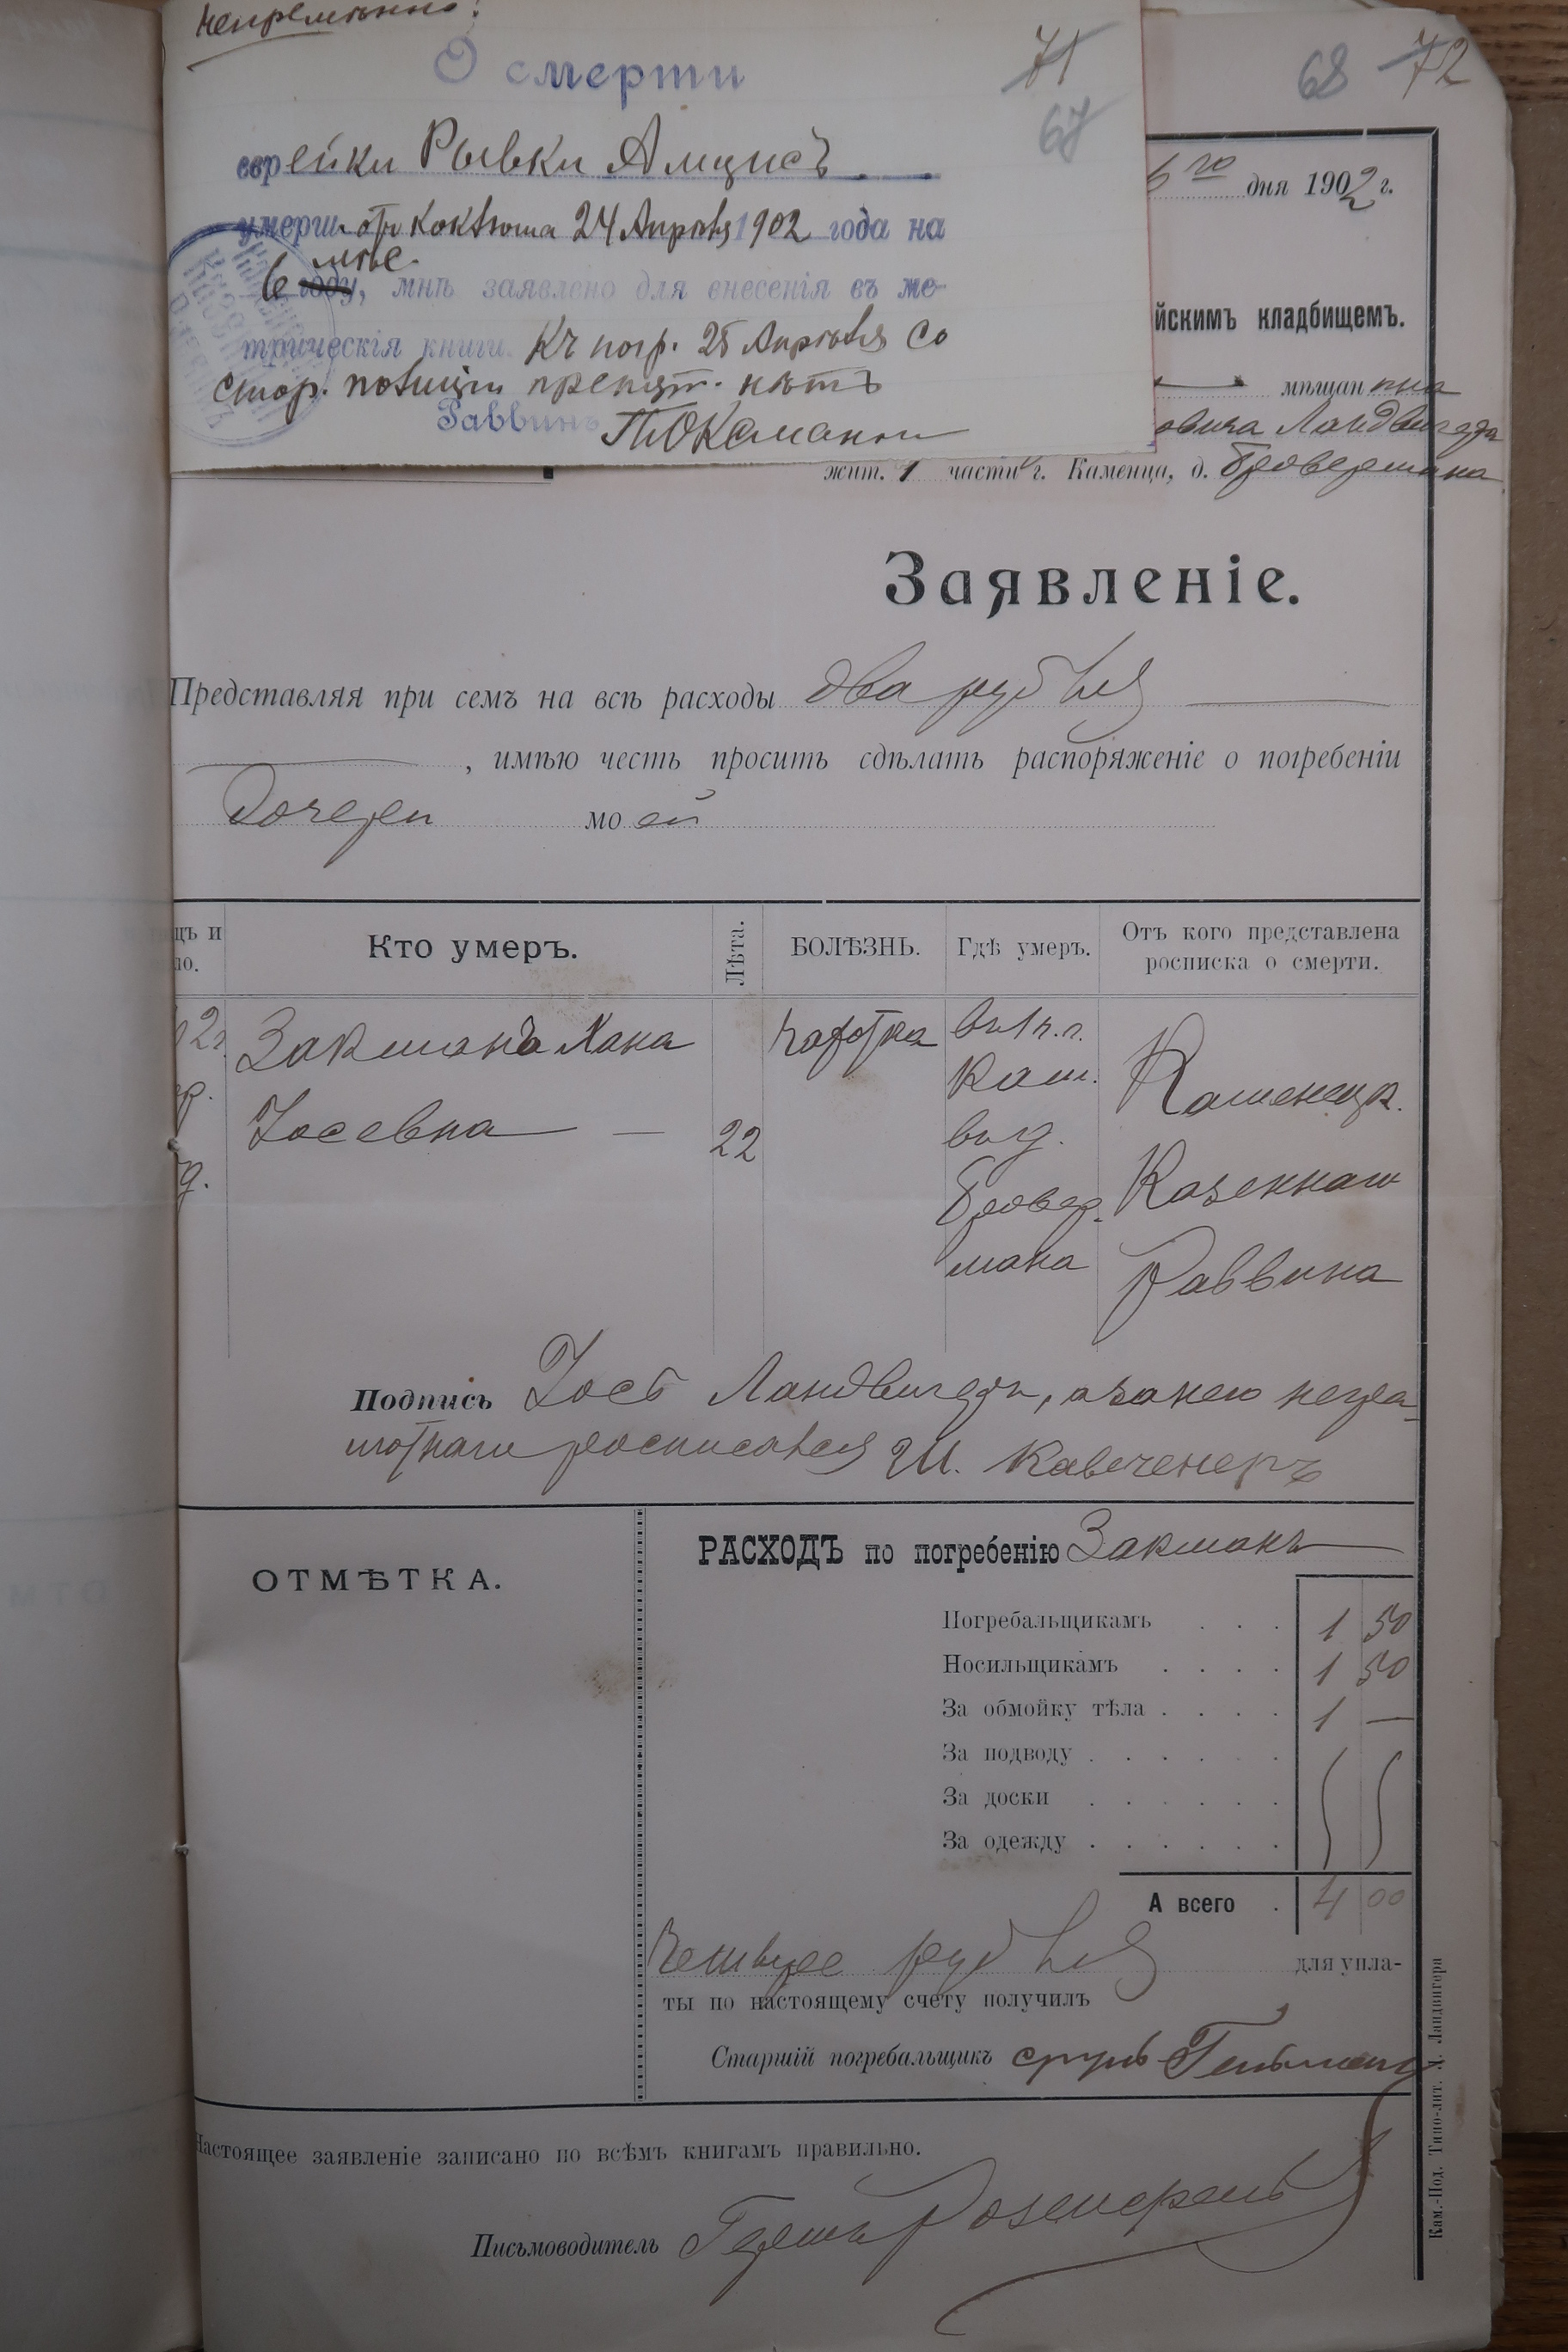 непремѣнно!
О смерти
71
67
68 72
еврейки Рывки Амцисъ
умерш. отъ коклюша 24 Апрѣля 1902 года на
6 мѣс.
году, мнѣ заявлено для внесенія въ ме-
трическія книги. Къ погр. 25 Апрѣля со
стор. полиціи препят. нѣтъ
Раввинъ
6 го дня 1902 г.
йскимъ кладбищемъ.
мѣщанина
овича Ландвигера
жит. 1 части г. Каменца, д. Бровермана
Заявленіе.
Представляя при семъ на всѣ расходы два рубля
, имѣю честь просить сдѣлать распоряженіе о погребеніи
Дочери моей
цъ и
ло.
Кто умеръ.
Лѣта.
БОЛѢЗНЬ.
Гдѣ умеръ.
Отъ кого представлена
росписка о смерти.
Закманъ Хана
Іосевна — 22
чахотка
въ 1 ч. г.
Кам.
въ д.
Бровер-
мана
Каменецк.
Казеннаго
Раввина
Подпись Іосъ Ландвигеръ, а за него негра-
мотнаго росписался Ш. Кавеченеръ
ОТМѢТКА.
РАСХОДЪ по погребенію Закманъ
Погребальщикамъ . . . 1 50
Носильщикамъ . . . . 1 50
За обмойку тѣла . . . . 1 —
За подводу . . . . . .
За доски . . . . . .
За одежду . . . . . .
А всего . 4 00
Четыре рубля для упла-
ты по настоящему счету получилъ
Старшій погребальщикъ
Настоящее заявленіе записано по всѣмъ книгамъ правильно.
Письмоводитель
Кам.-Под. Типо-лит. Л. Ландвигера